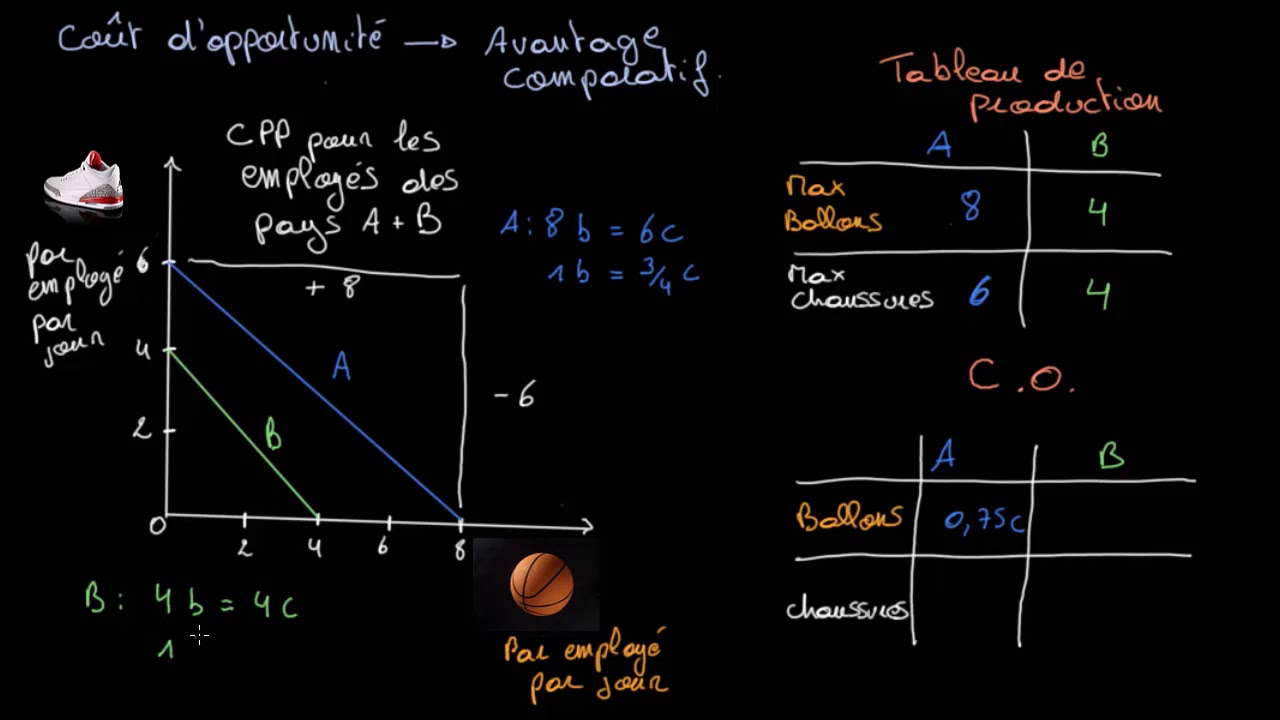 Coût d'opportunité → Avantage
comparatif.
CPP pour les
employés des
pays A + B
Par
employé
par
jour
6
4
2
0
2
4
6
8
+ 8
- 6
A
B
A : 8 b = 6 c
1 b = 3/4 c
B : 4 b = 4 c
1
Par employé
par jour
Tableau de
production
A B
Max
Ballons 8 4
Max
chaussures 6 4
C.O.
A B
Ballons 0,75c
chaussures